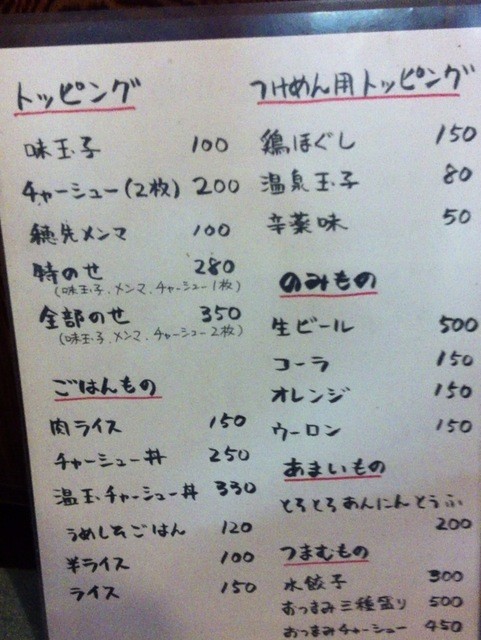 トッピング
味玉子 100
チャーシュー(2枚) 200
穂先メンマ 100
特のせ 280
(味玉子、メンマ、チャーシュー1枚)
全部のせ 350
(味玉子、メンマ、チャーシュー2枚)
ごはんもの
肉ライス 150
チャーシュー丼 250
温玉チャーシュー丼 330
うめしそごはん 120
半ライス 100
ライス 150
つけめん用トッピング
鶏ほぐし 150
温泉玉子 80
辛薬味 50
のみもの
生ビール 500
コーラ 150
オレンジ 150
ウーロン 150
あまいもの
とろとろあんにんとうふ
200
つまむもの
水餃子 300
おつまみ三種盛り 500
おつまみチャーシュー 450